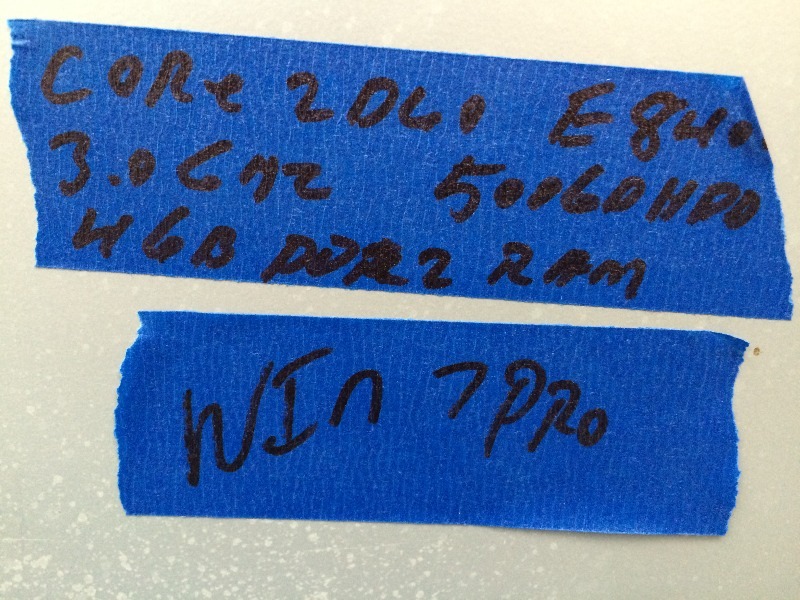 CORe 2 DUO E8400
3.0 GHZ 500GB HDD
4GB DDR2 RAM
WIn 7 PRO